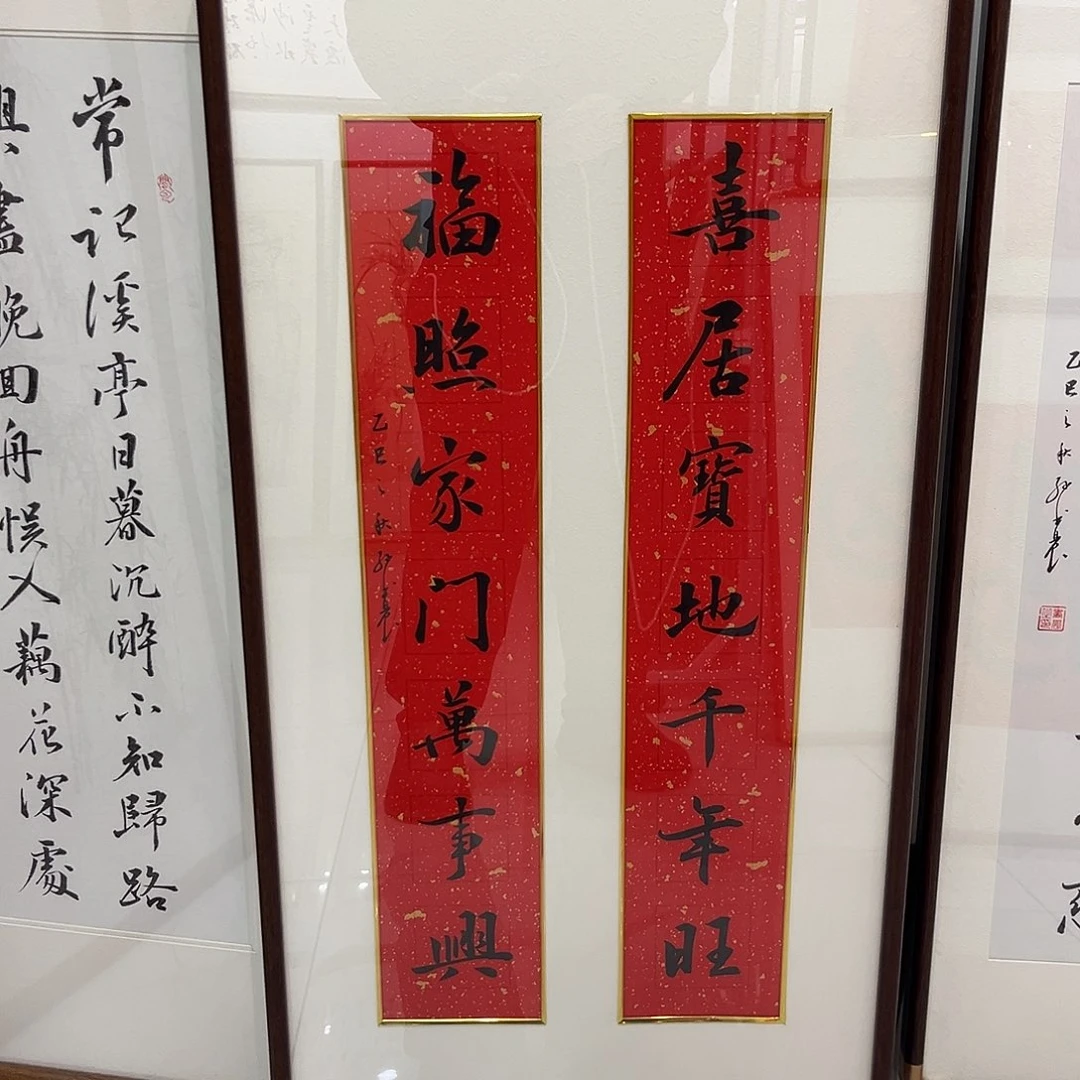 喜居寶地千年旺
福照家门萬事興
乙巳之秋
常记溪亭日暮沉醉不知歸路
興盡晚回舟误入藕花深處
乙巳之秋